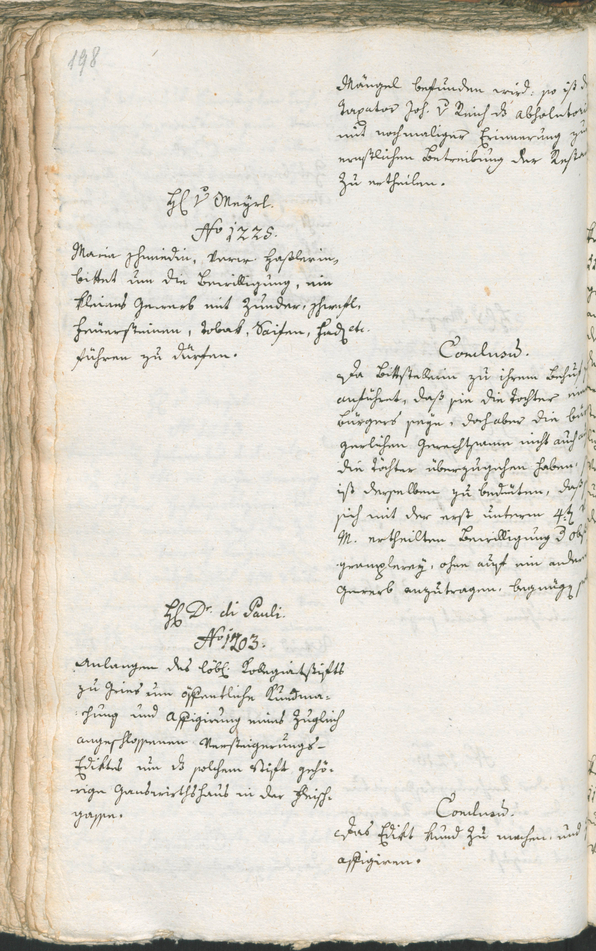 198
Mängel befunden wird, so ist d
Taxator Joh. v Reich ds Absolutori
mit nochmaliger Erinnerung zu
ernstlichen Betreibung der Resta
zu ertheilen.
H v Meyrl.
No 1225.
Maria Schmiedin,
bittet um die Bewilligung, ein
kleines Gewerb mit Zunder, Schwefl,
Feuersteinen, Tobak, Saifen, etc.
führen zu dürfen.
Conclusu.
Da Bittstellerin zu ihrem Behuf
anführet, daß sie die Tochter eines
Bürgers seye, doch aber die bür
gerlichen Gerechtsame nicht auch a
die Töchter überzugehen haben,
ist derselben zu bedeuten, daß
sich mit der erst unterm 4t
M. ertheilten Bewilligung z Obst
gremplerey, ohne auf ein anderes
Gewerb anzutragen, begnüge
H Dr. di Pauli.
No 1203.
Anlangen des löbl. Kollegiatstifts
zu Gries um öffentliche Kundma-
chung und Affigirung eines zugleich
angeschlossenen Versteigerungs-
Ediktes um ds solchem Stift gehö-
rige Ganswirthshaus in der Fleisch-
gasse.
Conclusu.
Das Edikt kund zu machen, und
affigiren.